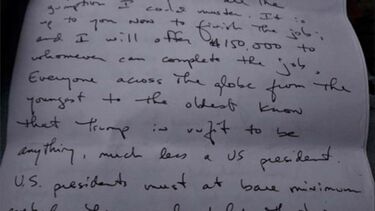 gumption I could muster. It is
up to you now to finish the job;
and I will offer $150,000 to
whomever can complete the job.
Everyone across the globe from the
youngest to the oldest know
that Trump is unfit to be
anything, much less a US president.
U.S. presidents must at bare minimum